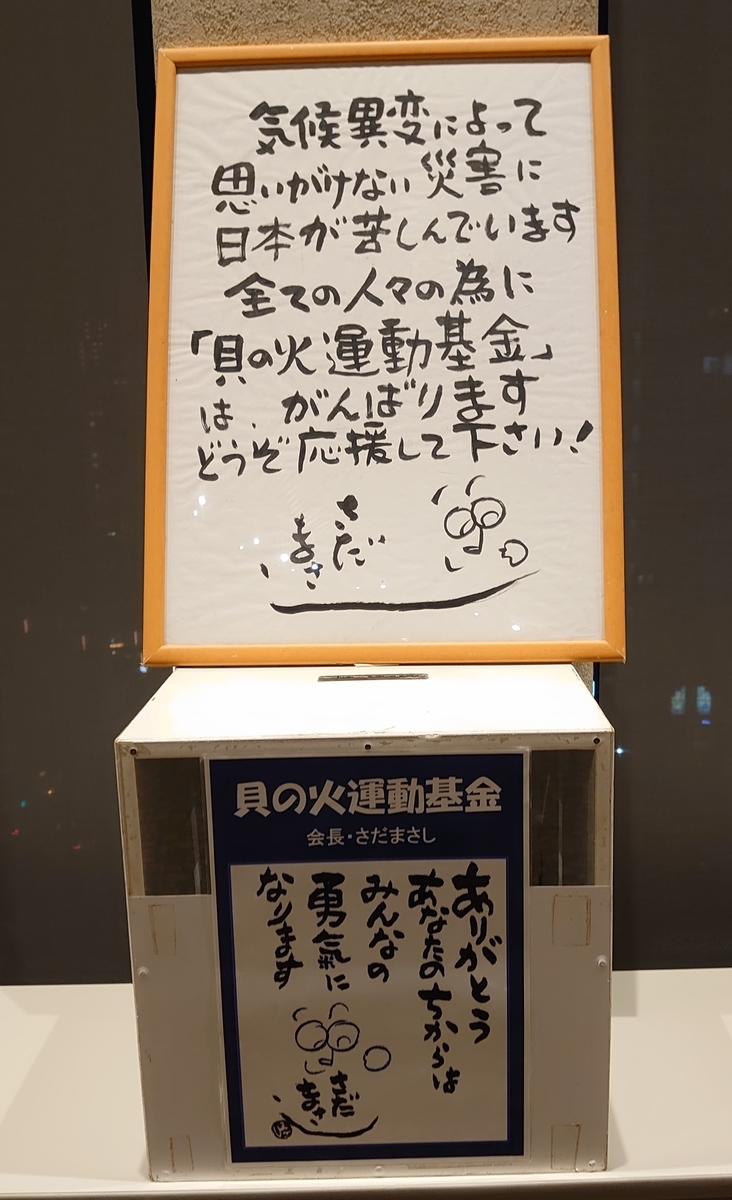 気候異変によって
思いがけない災害に
日本が苦しんでいます
全ての人々の為に
「貝の火運動基金」
は、がんばります
どうぞ応援して下さい!
さだ
まさし
貝の火運動基金
会長・さだまさし
ありがとう
あなたのちからは
みんなの
勇気に
なります
さだ
まさし